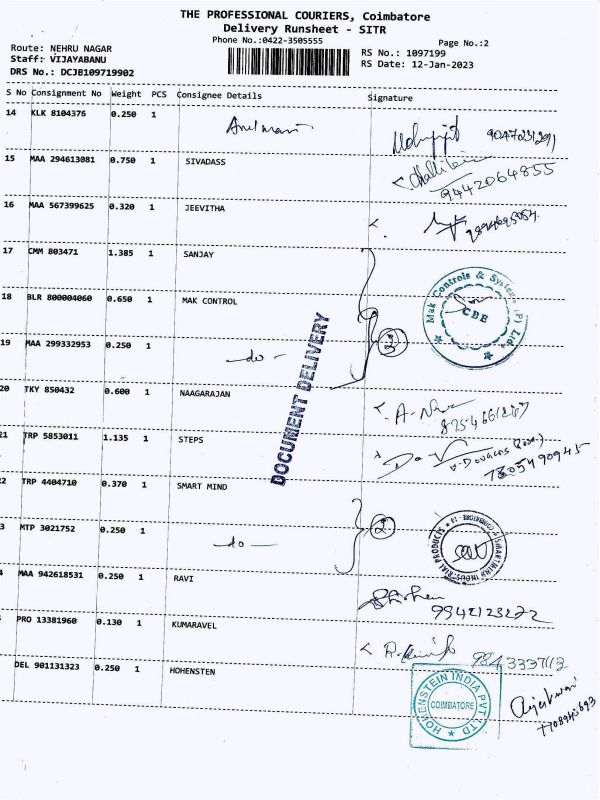 THE PROFESSIONAL COURIERS, Coimbatore
Delivery Runsheet - SITR
Phone No.:0422-3505555
Page No.:2
Route: NEHRU NAGAR
RS No.: 1097199
Staff: VIJAYABANU
RS Date: 12-Jan-2023
DRS No.: DCJB109719902
S No Consignment No Weight PCS Consignee Details Signature
14 KLK 8104376 0.250 1
15 MAA 294613081 0.750 1 SIVADASS
9442064855
16 MAA 567399625 0.320 1 JEEVITHA
17 CMM 803471 1.385 1 SANJAY
18 BLR 800004060 0.650 1 MAK CONTROL
Mak Controls & Systems (P) Ltd.
CBE
19 MAA 299332953 0.250 1 -do-
3
DOCUMENT DELIVERY
20 TKY 850432 0.600 1 NAAGARAJAN
21 TRP 5853011 1.135 1 STEPS
V. DOUGLAS
2 TRP 4404710 0.370 1 SMART MIND
3 MTP 3021752 0.250 1 -do-
2
SMART MIND INDUSTRIAL PRODUCTS
4 MAA 942618531 0.250 1 RAVI
PRO 13381960 0.130 1 KUMARAVEL
DEL 901131323 0.250 1 HOHENSTEN
HOHENSTEIN INDIA PVT LTD
COIMBATORE